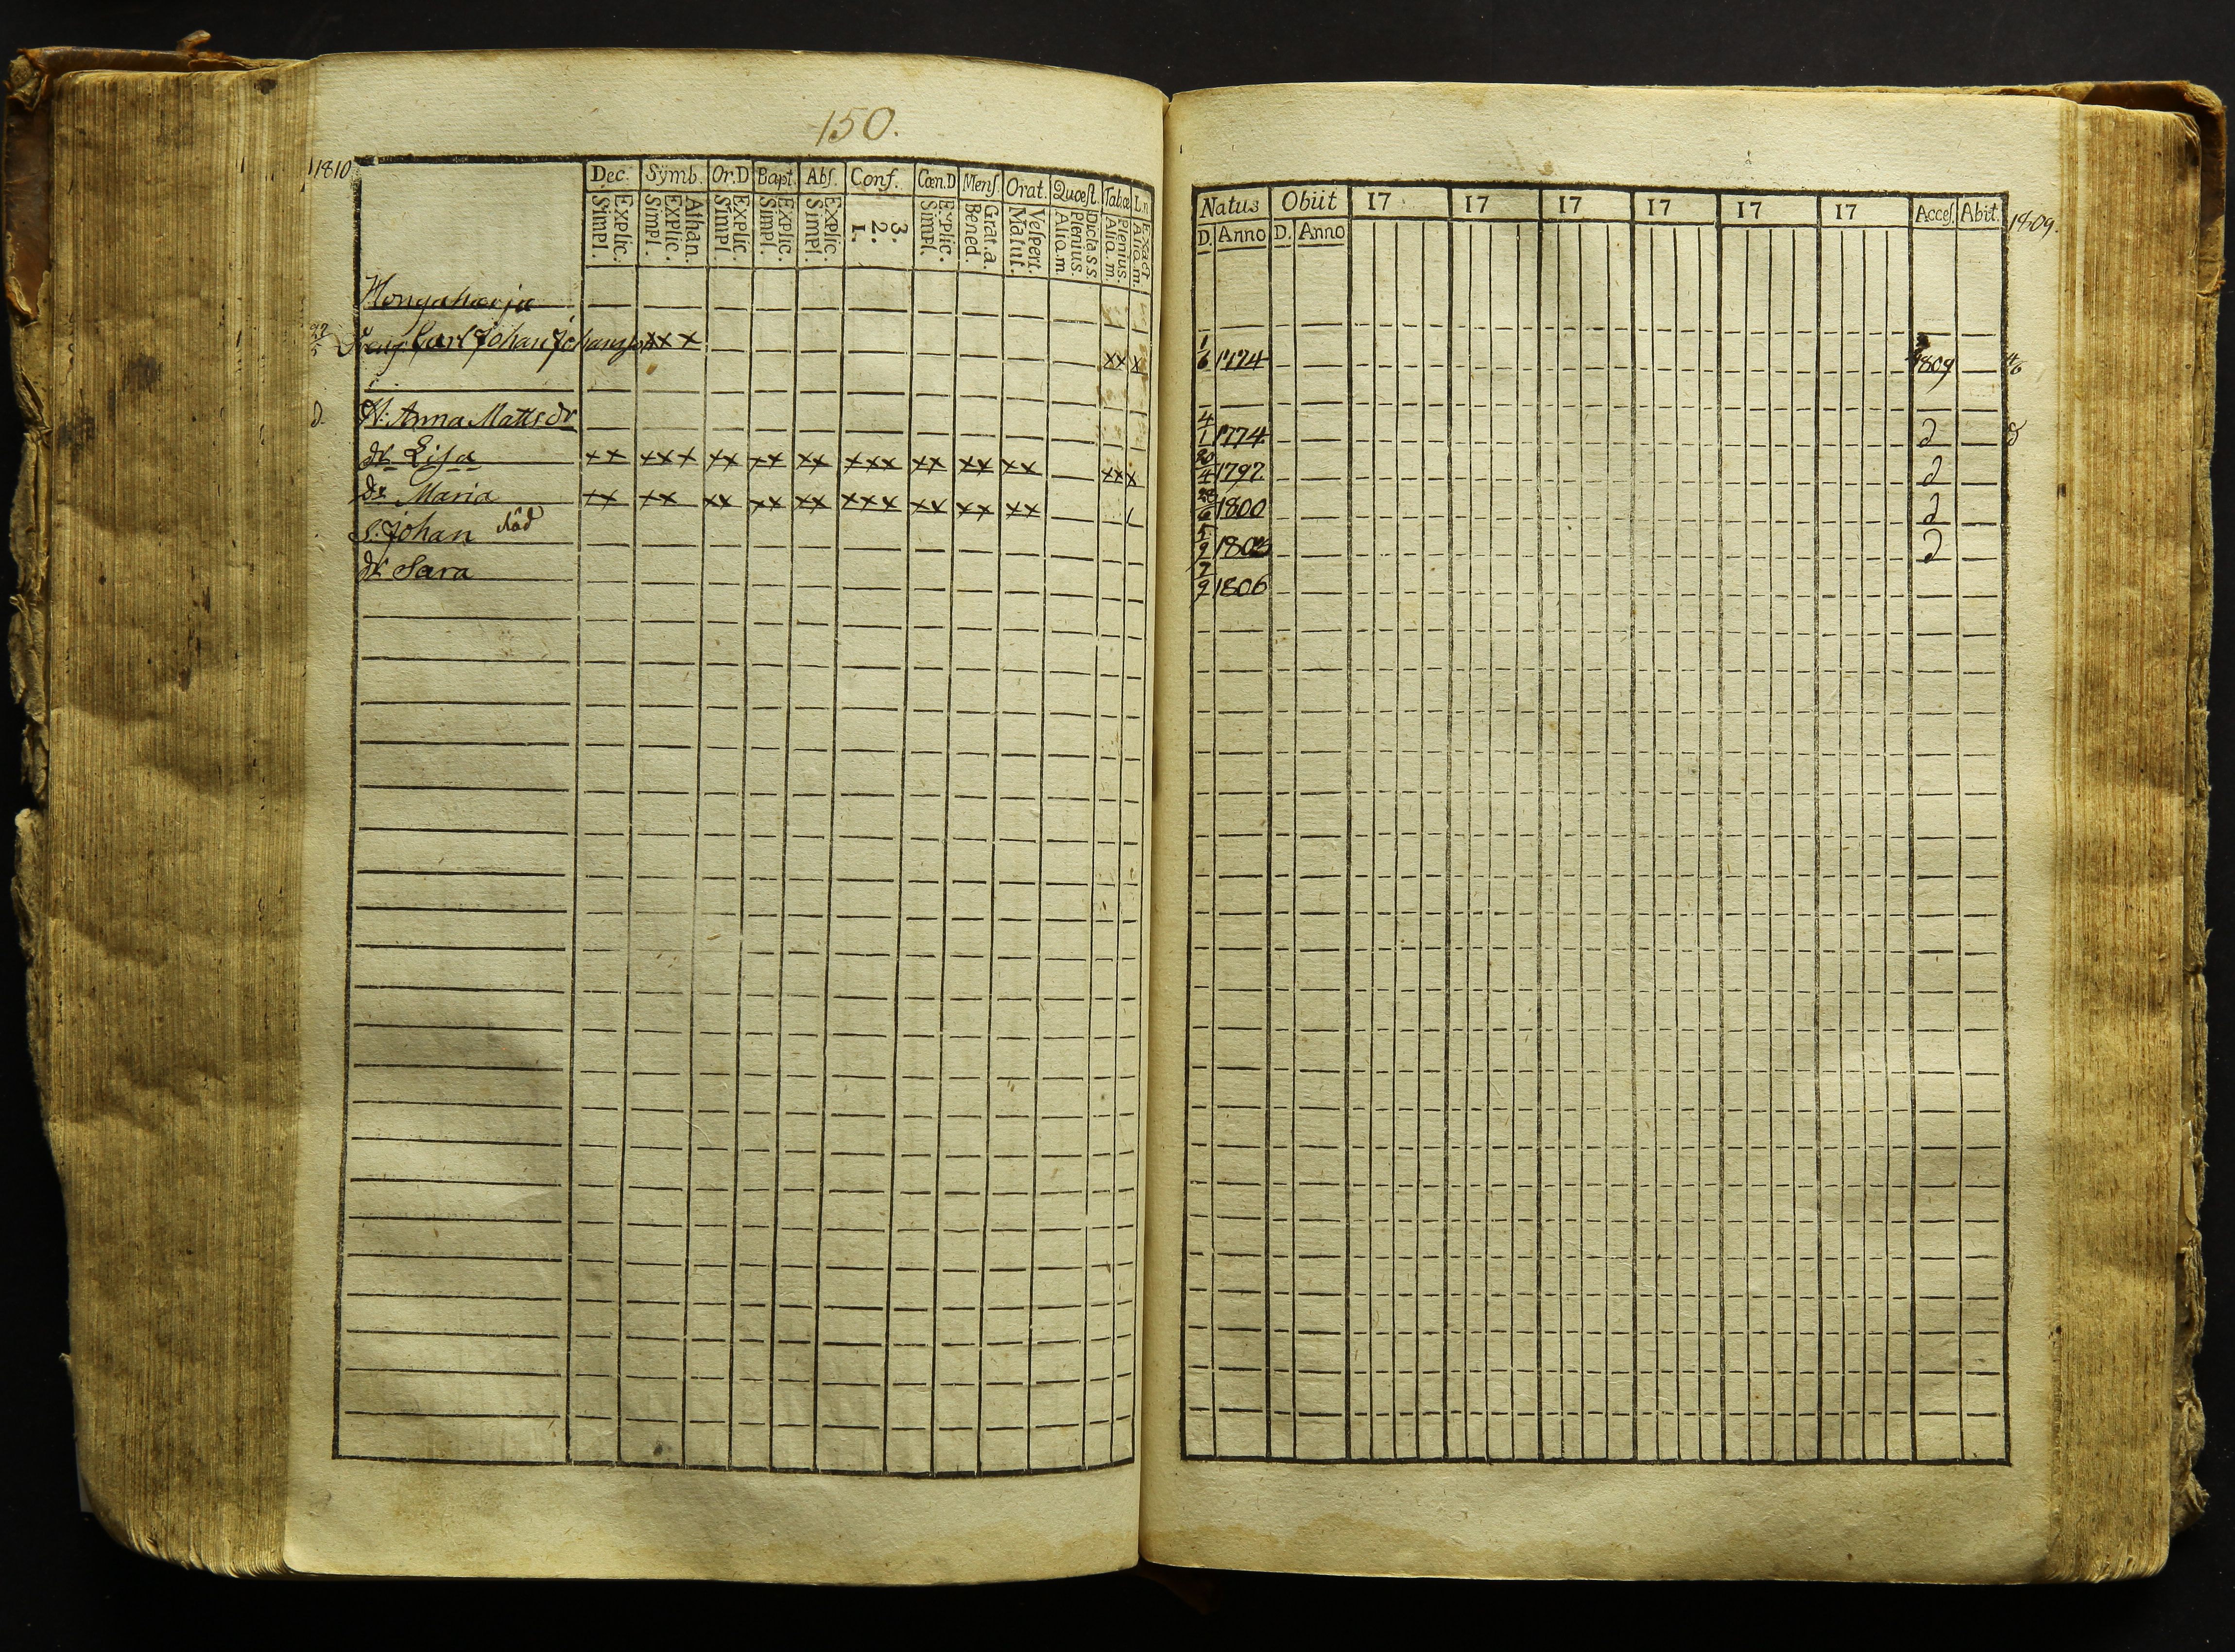 150.
1810
Dec. Symb. Or.D Bapt. Abſ. Conf. Cœn.D Menſ Orat. Quæſt. Tabœ L.n
Explic. Simpl. Athan. Explic. Simpl. Explic. Simpl. Explic. Simpl. Explic. Simpl. 3. 2. 1. Explic. Simpl. Grat.a. Bened. Veſpert. Matut. Dicta.s.s. Plenius. Aliq.m. Plenius. Aliq.m. Exact Aliq.m.
Hongaharja
Dreng Carl Johan Johansson xxx xx x
d. H: Anna Mattsdr
dr Lisa xx xxx xx xx xx xxx xx xx xx xx x
dr Maria xx xx xx xx xx xxx xx xx xx
S. Johan död
dr Sara
Natus Obiit 17 17 17 17 17 17 Acceſ. Abit. 1809.
D. Anno D. Anno
1/6 1774 1809
4/1 1774 d d
20/4 1797 d
28/6 1800 d
5/9 1803 d
7/9 1806